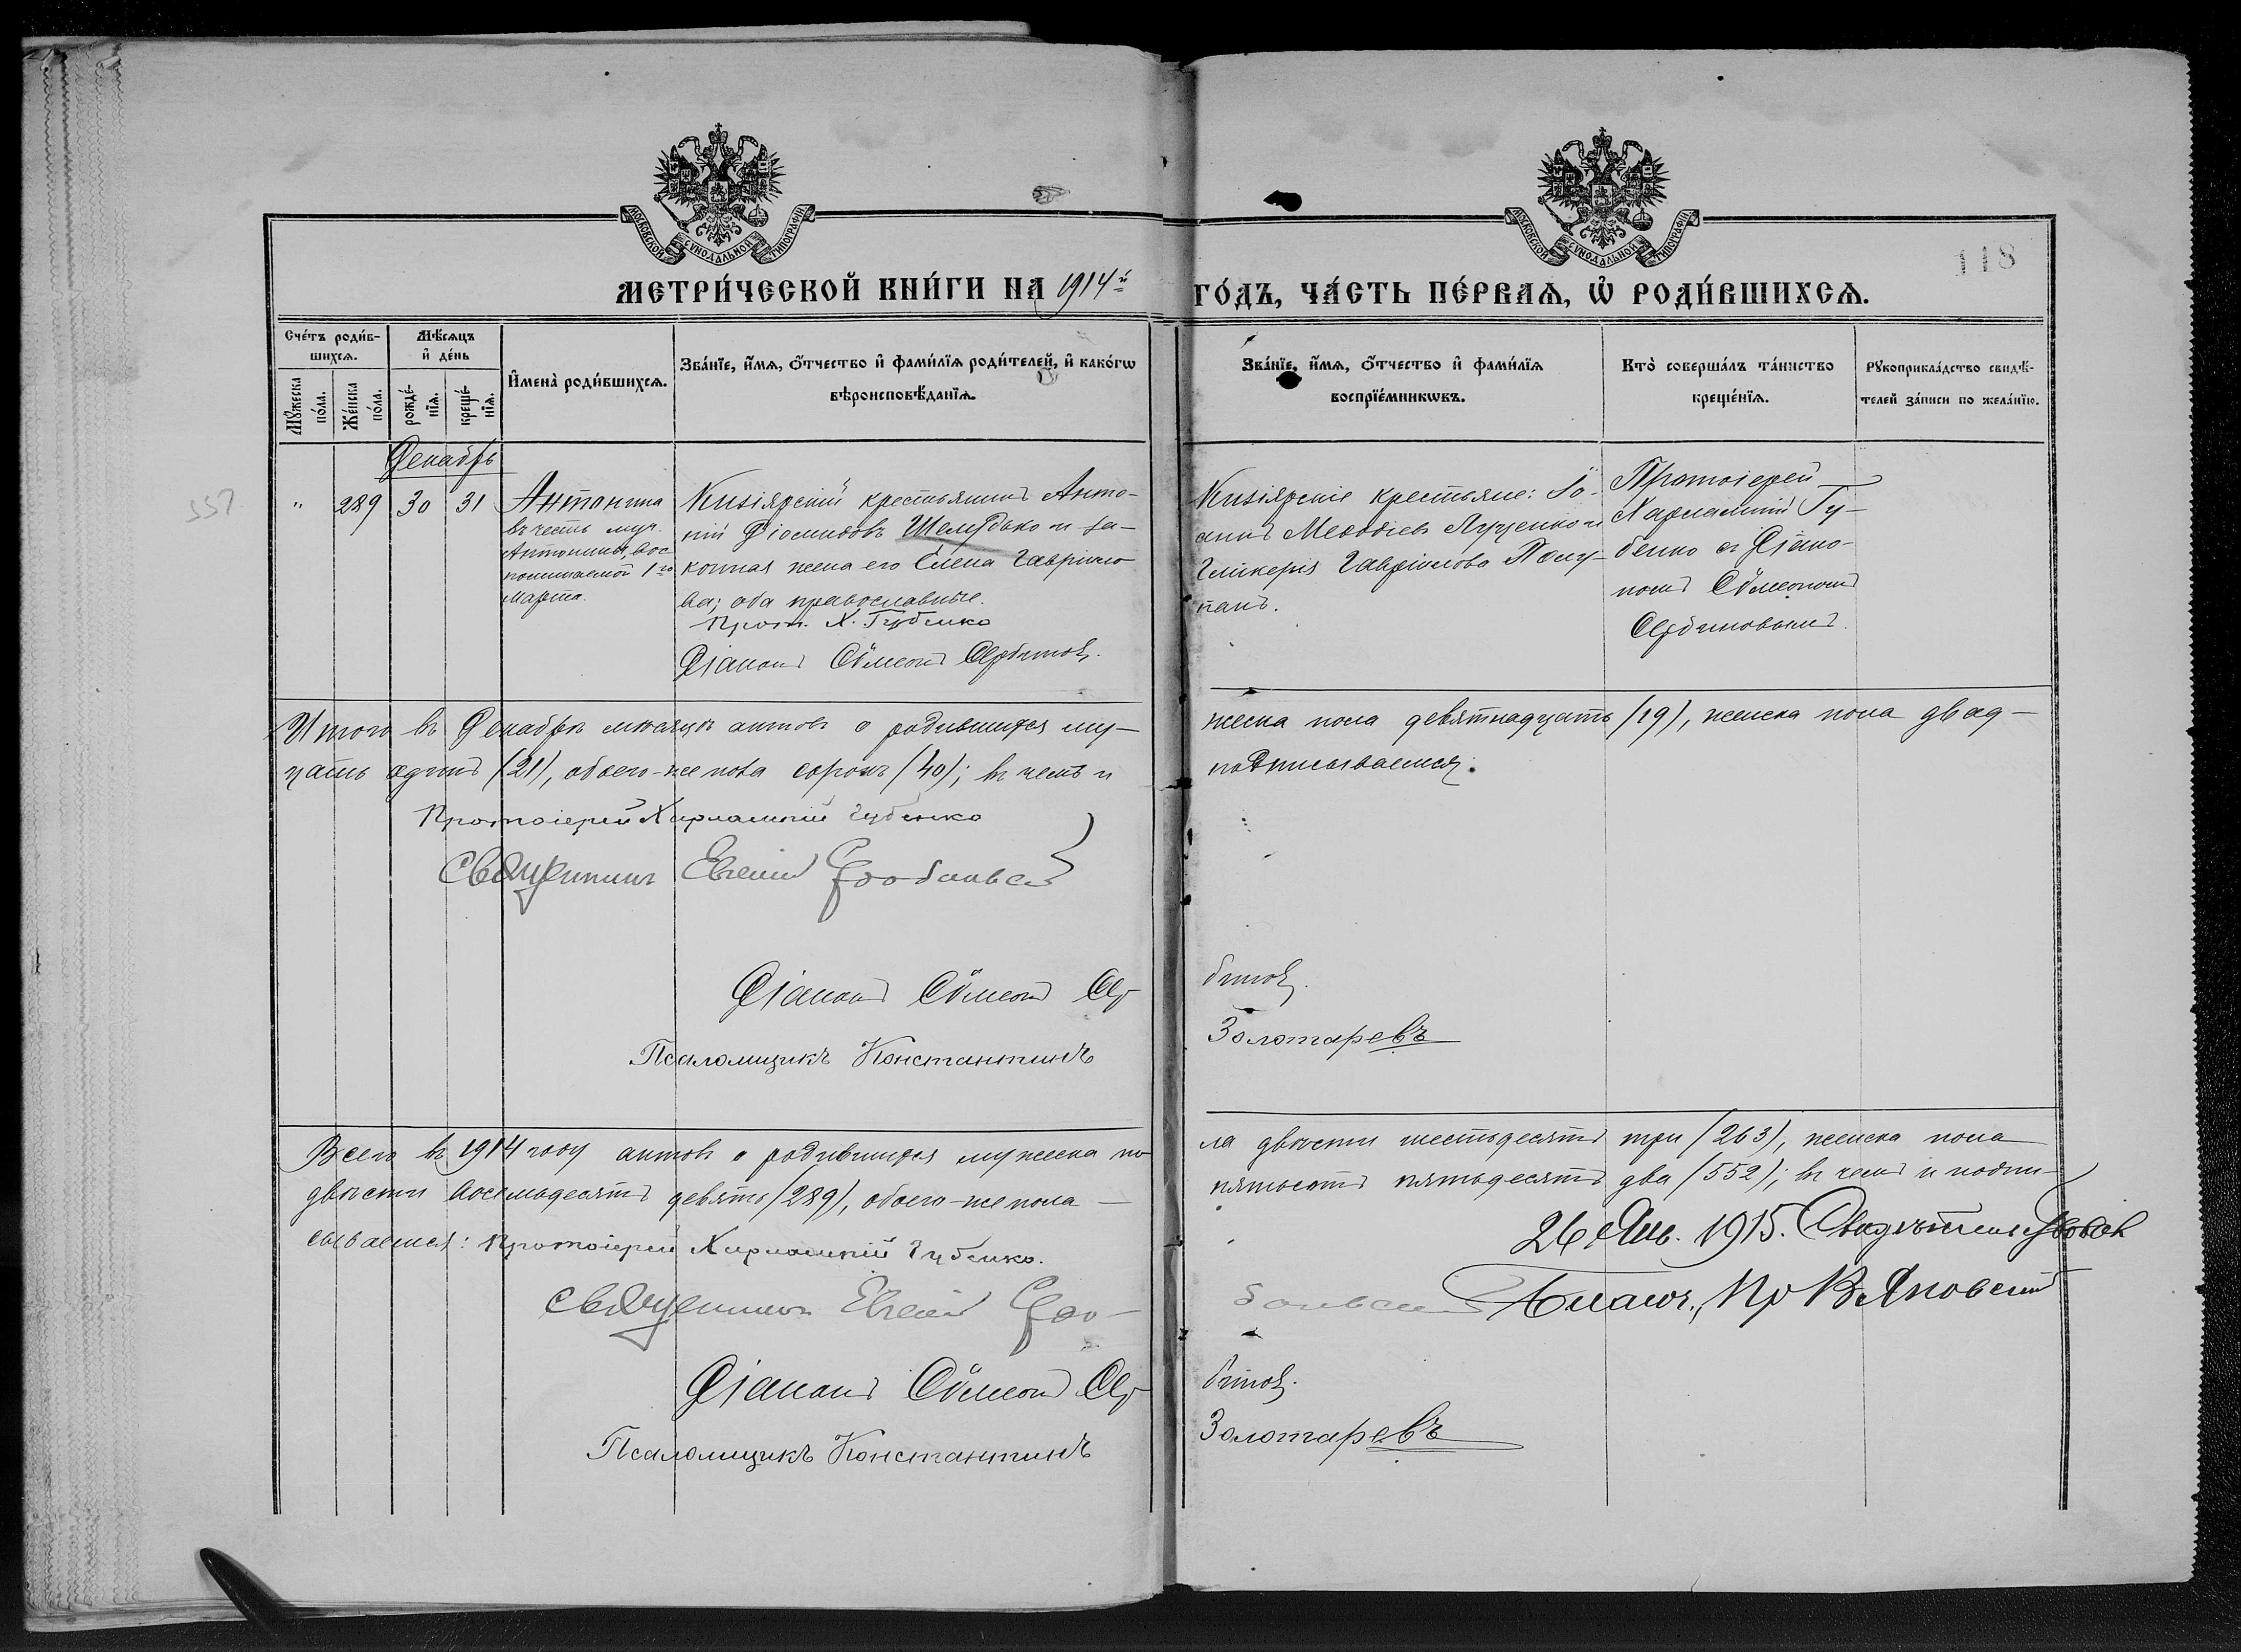 МОСКОВСКОЙ СѴНОДАЛЬНОЙ ТИПОГРАФІИ
МОСКОВСКОЙ СѴНОДАЛЬНОЙ ТИПОГРАФІИ
118
МЕТРИ́ЧЕСКОЙ КНИ́ГИ НА 1914й ГО́ДЪ, ЧА́СТЬ ПЕ́РВАѦ, Ѡ҆ РОДИ́ВШИХСѦ.
Сче́тъ роди́в-
шихсѧ.
Мѣ́сѧцъ
и҆ де́нь
Мꙋ́жеска по́ла.
Же́нска по́ла.
рожде́-
нїѧ.
креще́-
нїѧ.
И҆мена̀ роди́вшихсѧ.
Зва́нїе, и҆́мѧ, ѻ҆́тчество и҆ фами́лїѧ роди́телей, и҆ како́гѡ
вѣроисповѣ́данїѧ.
Зва́нїе, и҆́мѧ, ѻ҆́тчество и҆ фами́лїѧ
воспрїе́мникѡвъ.
Кто̀ соверша́лъ та́инство
креще́нїѧ.
Рꙋкоприкла́дство свидѣ́-
телей за́писи по жела́нїю.
Декабрь
557
" 289 30 31
Антонина
въ честь муч.
Антонины, вос
поминаемой 1го
Марта.
Кизіярскій крестьянинъ Анто-
ній Діомидовъ Шелудько и за-
конная жена его Елена Гавріило
ва; оба православные.
Прот. Х. Губенко
Діаконъ Сѵмеонъ Сербиновъ.
Кизіярскіе крестьяне: Іо-
аннъ Меѳодіевъ Луценко и
Гликерія Гавріилова Полу-
панъ.
Протоіерей
Харлампій Гу-
бенко съ Діако-
номъ Сѵмеономъ
Сербиновымъ.
Итого въ Декабрѣ мѣсяцѣ актовъ о родившихся му-
жеска пола девятнадцать (19), женска пола двад-
цать одинъ (21), обоего-же пола сорокъ (40); въ чемъ и
подписываемся:
Протоіерей Харлампій Губенко
Священникъ Евгеній
Діаконъ Сѵмеонъ Сер
биновъ.
Псаломщикъ Константинъ
Золотаревъ
Всего въ 1914 году актовъ о родившихся мужеска по
ла двѣсти шестьдесятъ три (263), женска пола
двѣсти восемьдесятъ девять (289), обоего-же пола —
пятьсотъ пятьдесятъ два (552); въ чемъ и подпи-
сываемся: Протоіерей Харлампій Губенко.
26 Янв. 1915. Свидѣтельствовалъ
Священникъ Евгеній
Благоч., Пр В Яновскій
Діаконъ Сѵмеонъ Сер
биновъ.
Псаломщикъ Константинъ
Золотаревъ